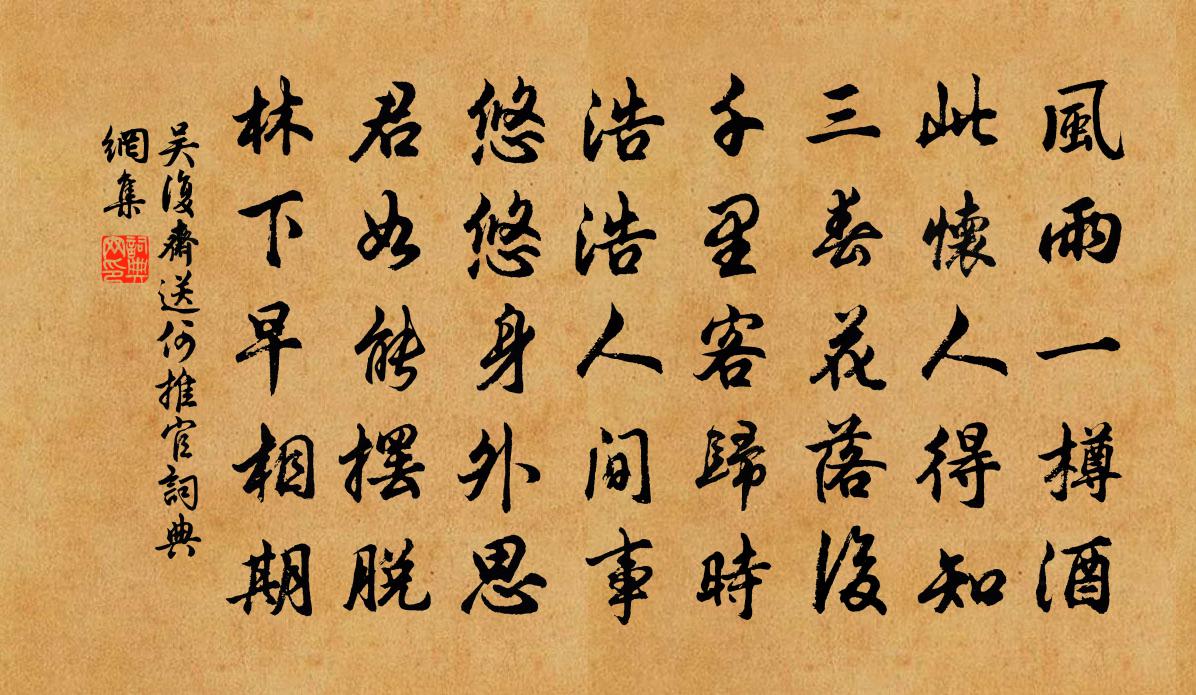 風雨一樽酒
此懷人得知
三春花落後
千里客歸時
浩浩人間事
悠悠身外思
君如能擺脫
林下早相期
吴復齋送何推官詞典
網集
詞典
网印